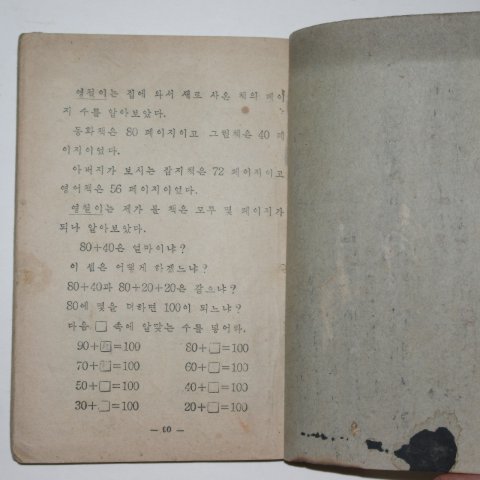 영철이는 집에 와서 새로 사온 책의 페이
지 수를 알아보았다.
동화책은 80 페이지이고 그림책은 40 페
이지이었다.
아버지가 보시는 잡지책은 72 페이지이고
영어책은 56 페이지이었다.
영철이는 제가 볼 책은 모두 몇 페이지가
되나 알아보았다.
80+40은 얼마이냐?
이 셈은 어떻게 하겠느냐?
80+40과 80+20+20은 같으냐?
80에 몇을 더하면 100이 되느냐?
다음 □ 속에 알맞는 수를 넣어라.
90+□=100 80+□=100
70+□=100 60+□=100
50+□=100 40+□=100
30+□=100 20+□=100